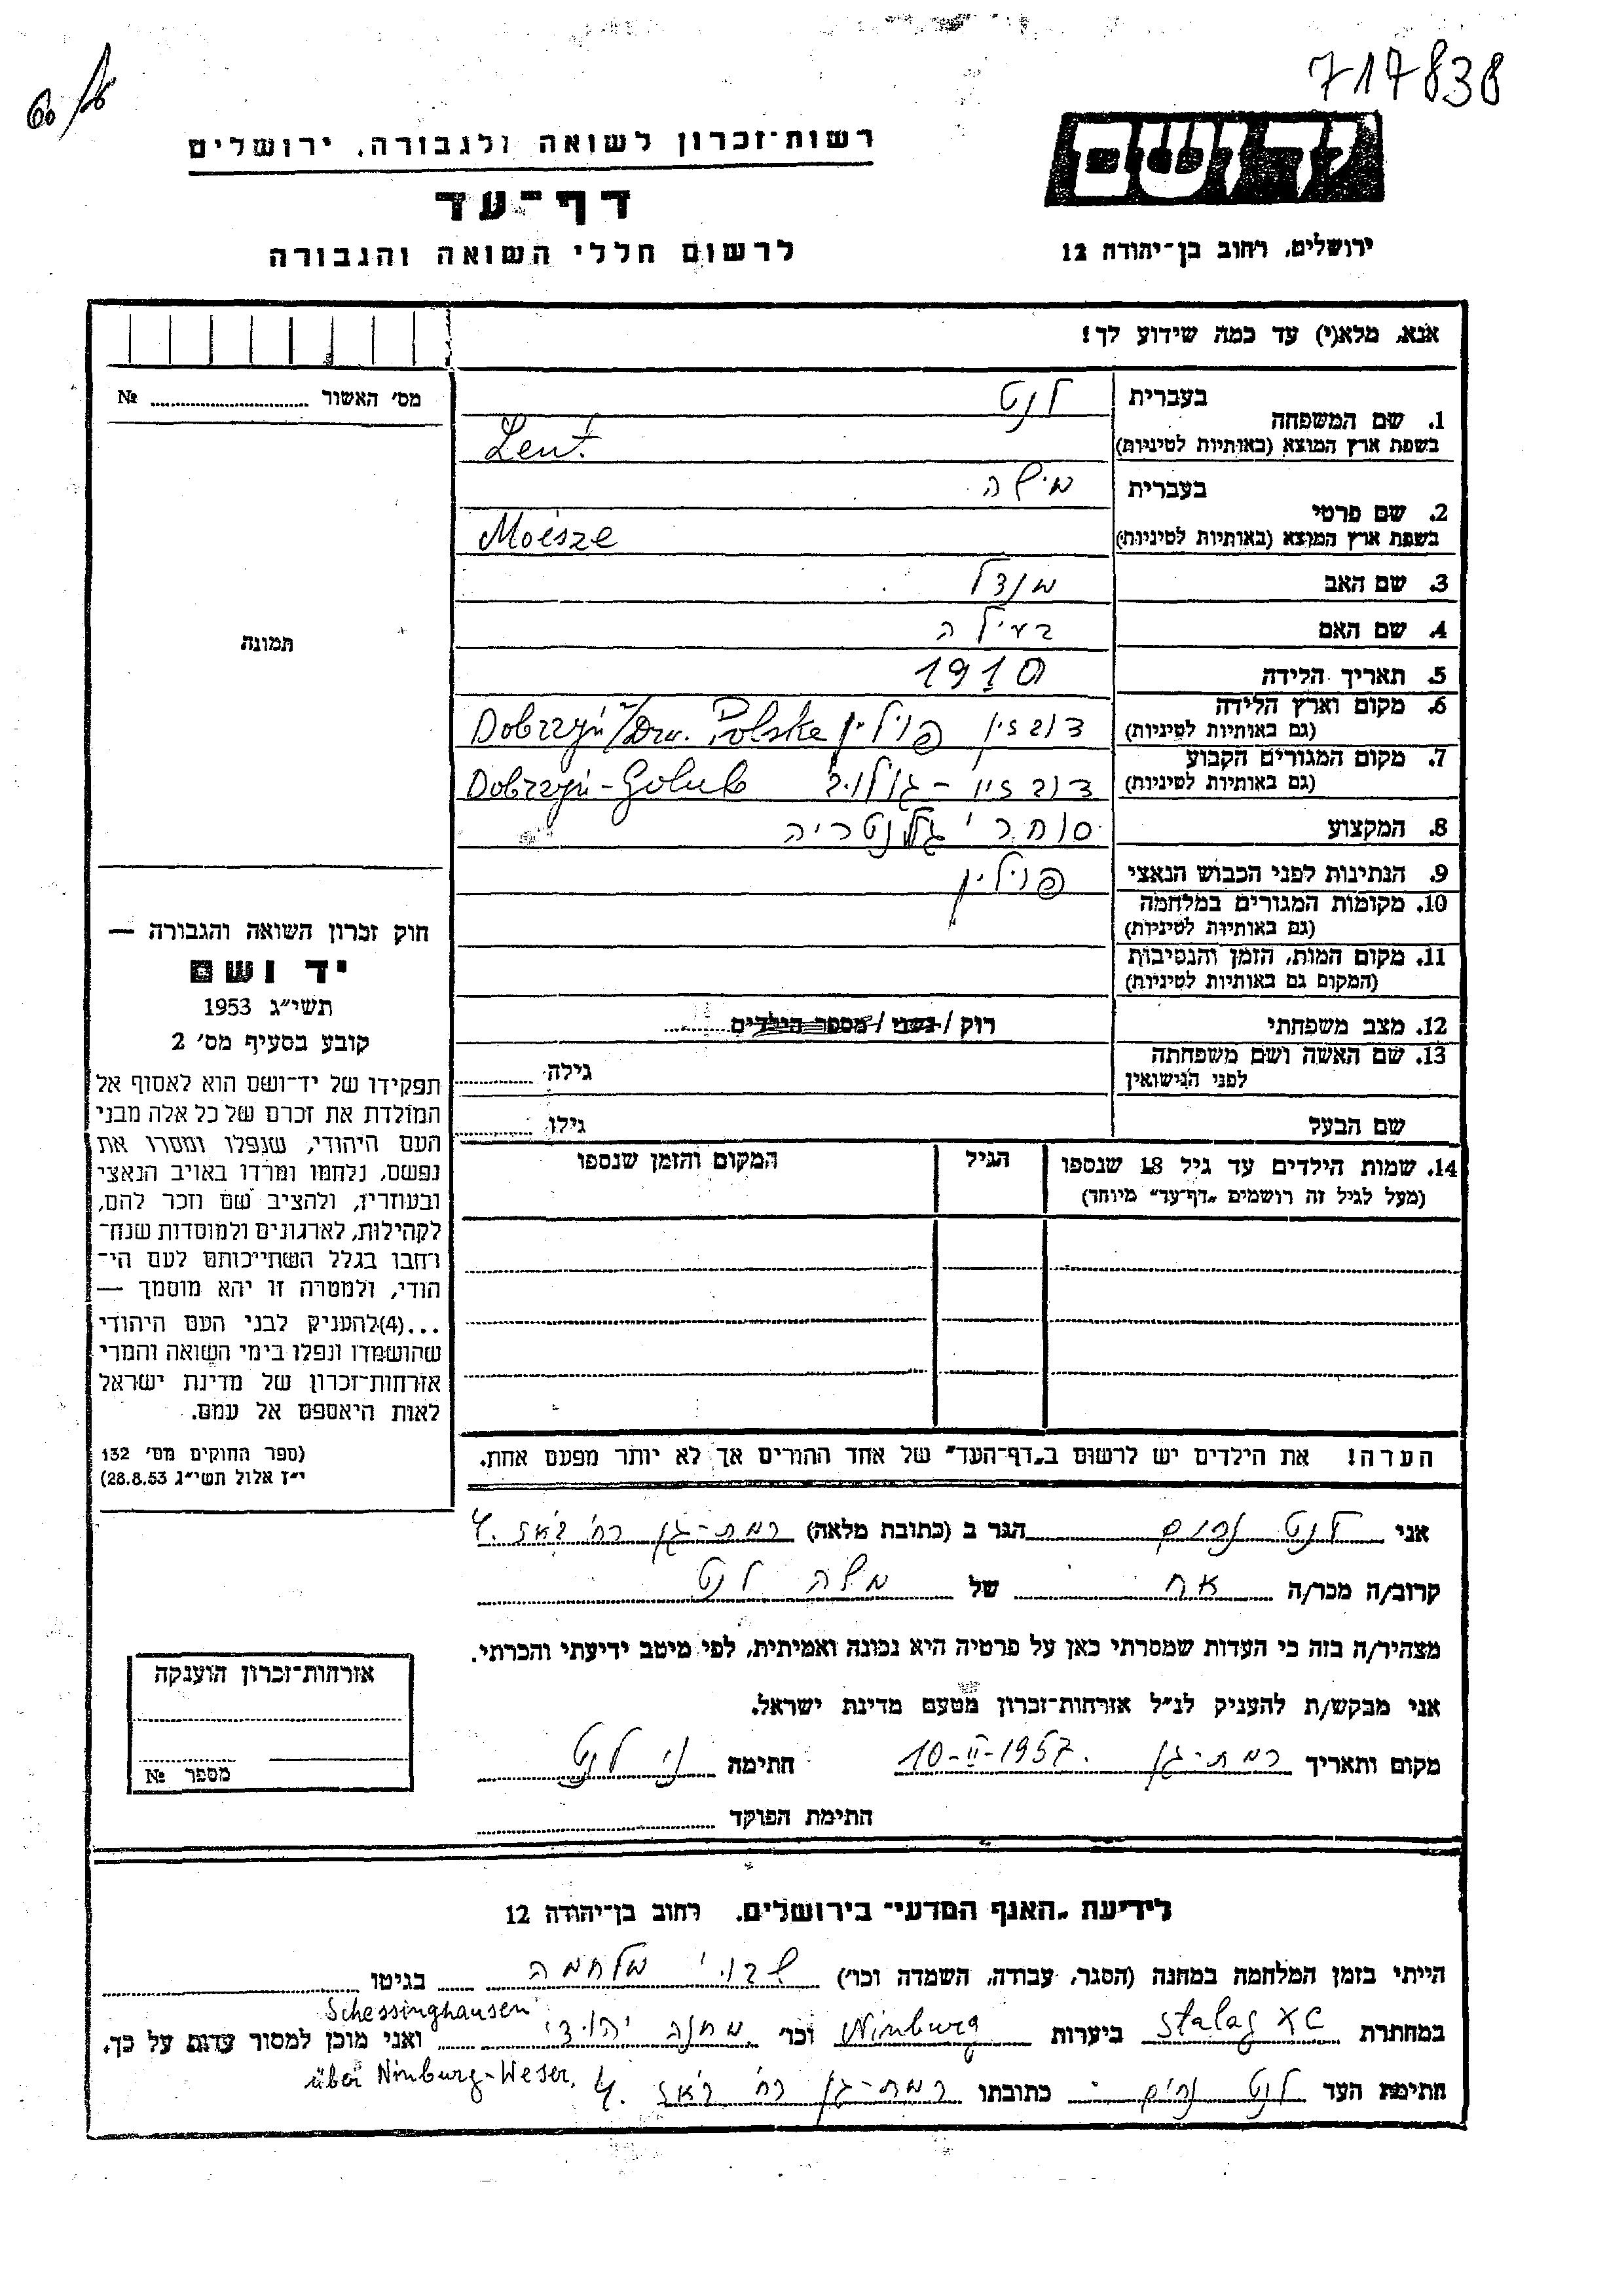 717838
יד ושם
רשות־זכרון לשואה ולגבורה, ירושלים
דף־עד
לרשום חללי השואה והגבורה
ירושלים, רחוב בן־יהודה 12
אנא, מלא(י) עד כמה שידוע לך!
מס' האשור № ........
תמונה
1. שם המשפחה בעברית לנט
בשפת ארץ המוצא (באותיות לטיניות) Lent
2. שם פרטי בעברית מישה
בשפת ארץ המוצא (באותיות לטיניות) Moesze
3. שם האב מנדל
4. שם האם ביילה
5. תאריך הלידה 1910
6. מקום וארץ הלידה (גם באותיות לטיניות) דובזין פולין Dobrzyń n/Drw. Polska
7. מקום המגורים הקבוע (גם באותיות לטיניות) דובזין - גולוב Dobrzyń - Golub
8. המקצוע סוחר גלנטריה
9. הנתינות לפני הכבוש הנאצי פולין
10. מקומות המגורים במלחמה (גם באותיות לטיניות)
11. מקום המות, הזמן והנסיבות (המקום גם באותיות לטיניות)
12. מצב משפחתי רוק / נשוי / מספר הילדים........
13. שם האשה ושם משפחתה לפני הנישואין גילה ........
שם הבעל גילו ........
14. שמות הילדים עד גיל 18 שנספו (מעל לגיל זה רושמים „דף־עד" מיוחד) הגיל המקום והזמן שנספו
חוק זכרון השואה והגבורה —
יד ושם
תשי"ג 1953
קובע בסעיף מס' 2
תפקידו של יד־ושם הוא לאסוף אל
המולדת את זכרם של כל אלה מבני
העם היהודי, שנפלו ומסרו את
נפשם, נלחמו ומרדו באויב הנאצי
ובעוזריו, ולהציב שם וזכר להם,
לקהילות, לארגונים ולמוסדות שנח־
רחבו בגלל השתייכותם לעם הי־
הודי, ולמטרה זו יהא מוסמך —
...(4)להעניק לבני העם היהודי
שהושמדו ונפלו בימי השואה והמרי
אזרחות־זכרון של מדינת ישראל
לאות היאספם אל עמם.
(ספר החוקים מס' 132
י"ז אלול תשי"ג 28.8.53)
הערה! את הילדים יש לרשום ב„דף־העד" של אחד ההורים אך לא יותר מפעם אחת.
אני לנט נחום הגר ב (כתובת מלאה) רמת-גן רח' 4
קרוב/ה מכר/ה אח של משה לנט
מצהיר/ה בזה כי העדות שמסרתי כאן על פרטיה היא נכונה ואמיתית, לפי מיטב ידיעתי והכרתי.
אני מבקש/ת להעניק לנ"ל אזרחות־זכרון מטעם מדינת ישראל.
מקום ותאריך רמת-גן 10-II-1957. חתימה נ' לנט
חתימת הפוקד
אזרחות־זכרון הוענקה
מספר №
לידיעת „האגף המדעי" בירושלים, רחוב בן־יהודה 12
הייתי בזמן המלחמה במחנה (הסגר, עבודה, השמדה וכו') שבויי מלחמה בגיטו
במחתרת Stalag XC ביערות Nimburg וכו' מחנה יהודי Schessinghausen ואני מוכן למסור עדות על כך.
über Nimburg-Weser.
חתימת העד לנט נחום כתובתו רמת-גן רח' 4.